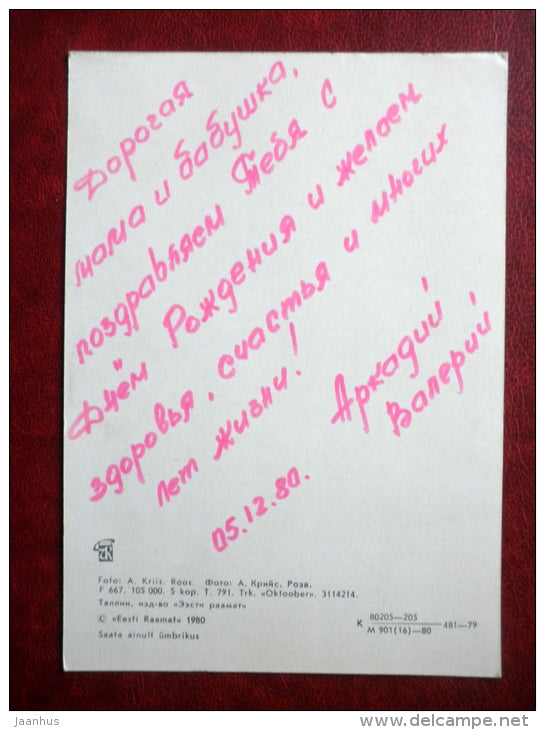 Дорогая
мама и бабушка,
поздравляем Тебя с
Днём Рождения и желаем
здоровья, счастья и многих
лет жизни!
Аркадий,
Валерий
05.12.80.
Foto: A. Kriis. Roos. Фото: А. Крийс. Роза.
F 667. 105 000. 5 kop. T. 791. Trk. «Oktoober». 3114214.
Таллин, изд-во «Ээсти раамат»
© «Eesti Raamat» 1980
Saata ainult ümbrikus
К 80205—205
М 901(16)—80 481—79
jaanhus
www.delcampe.net